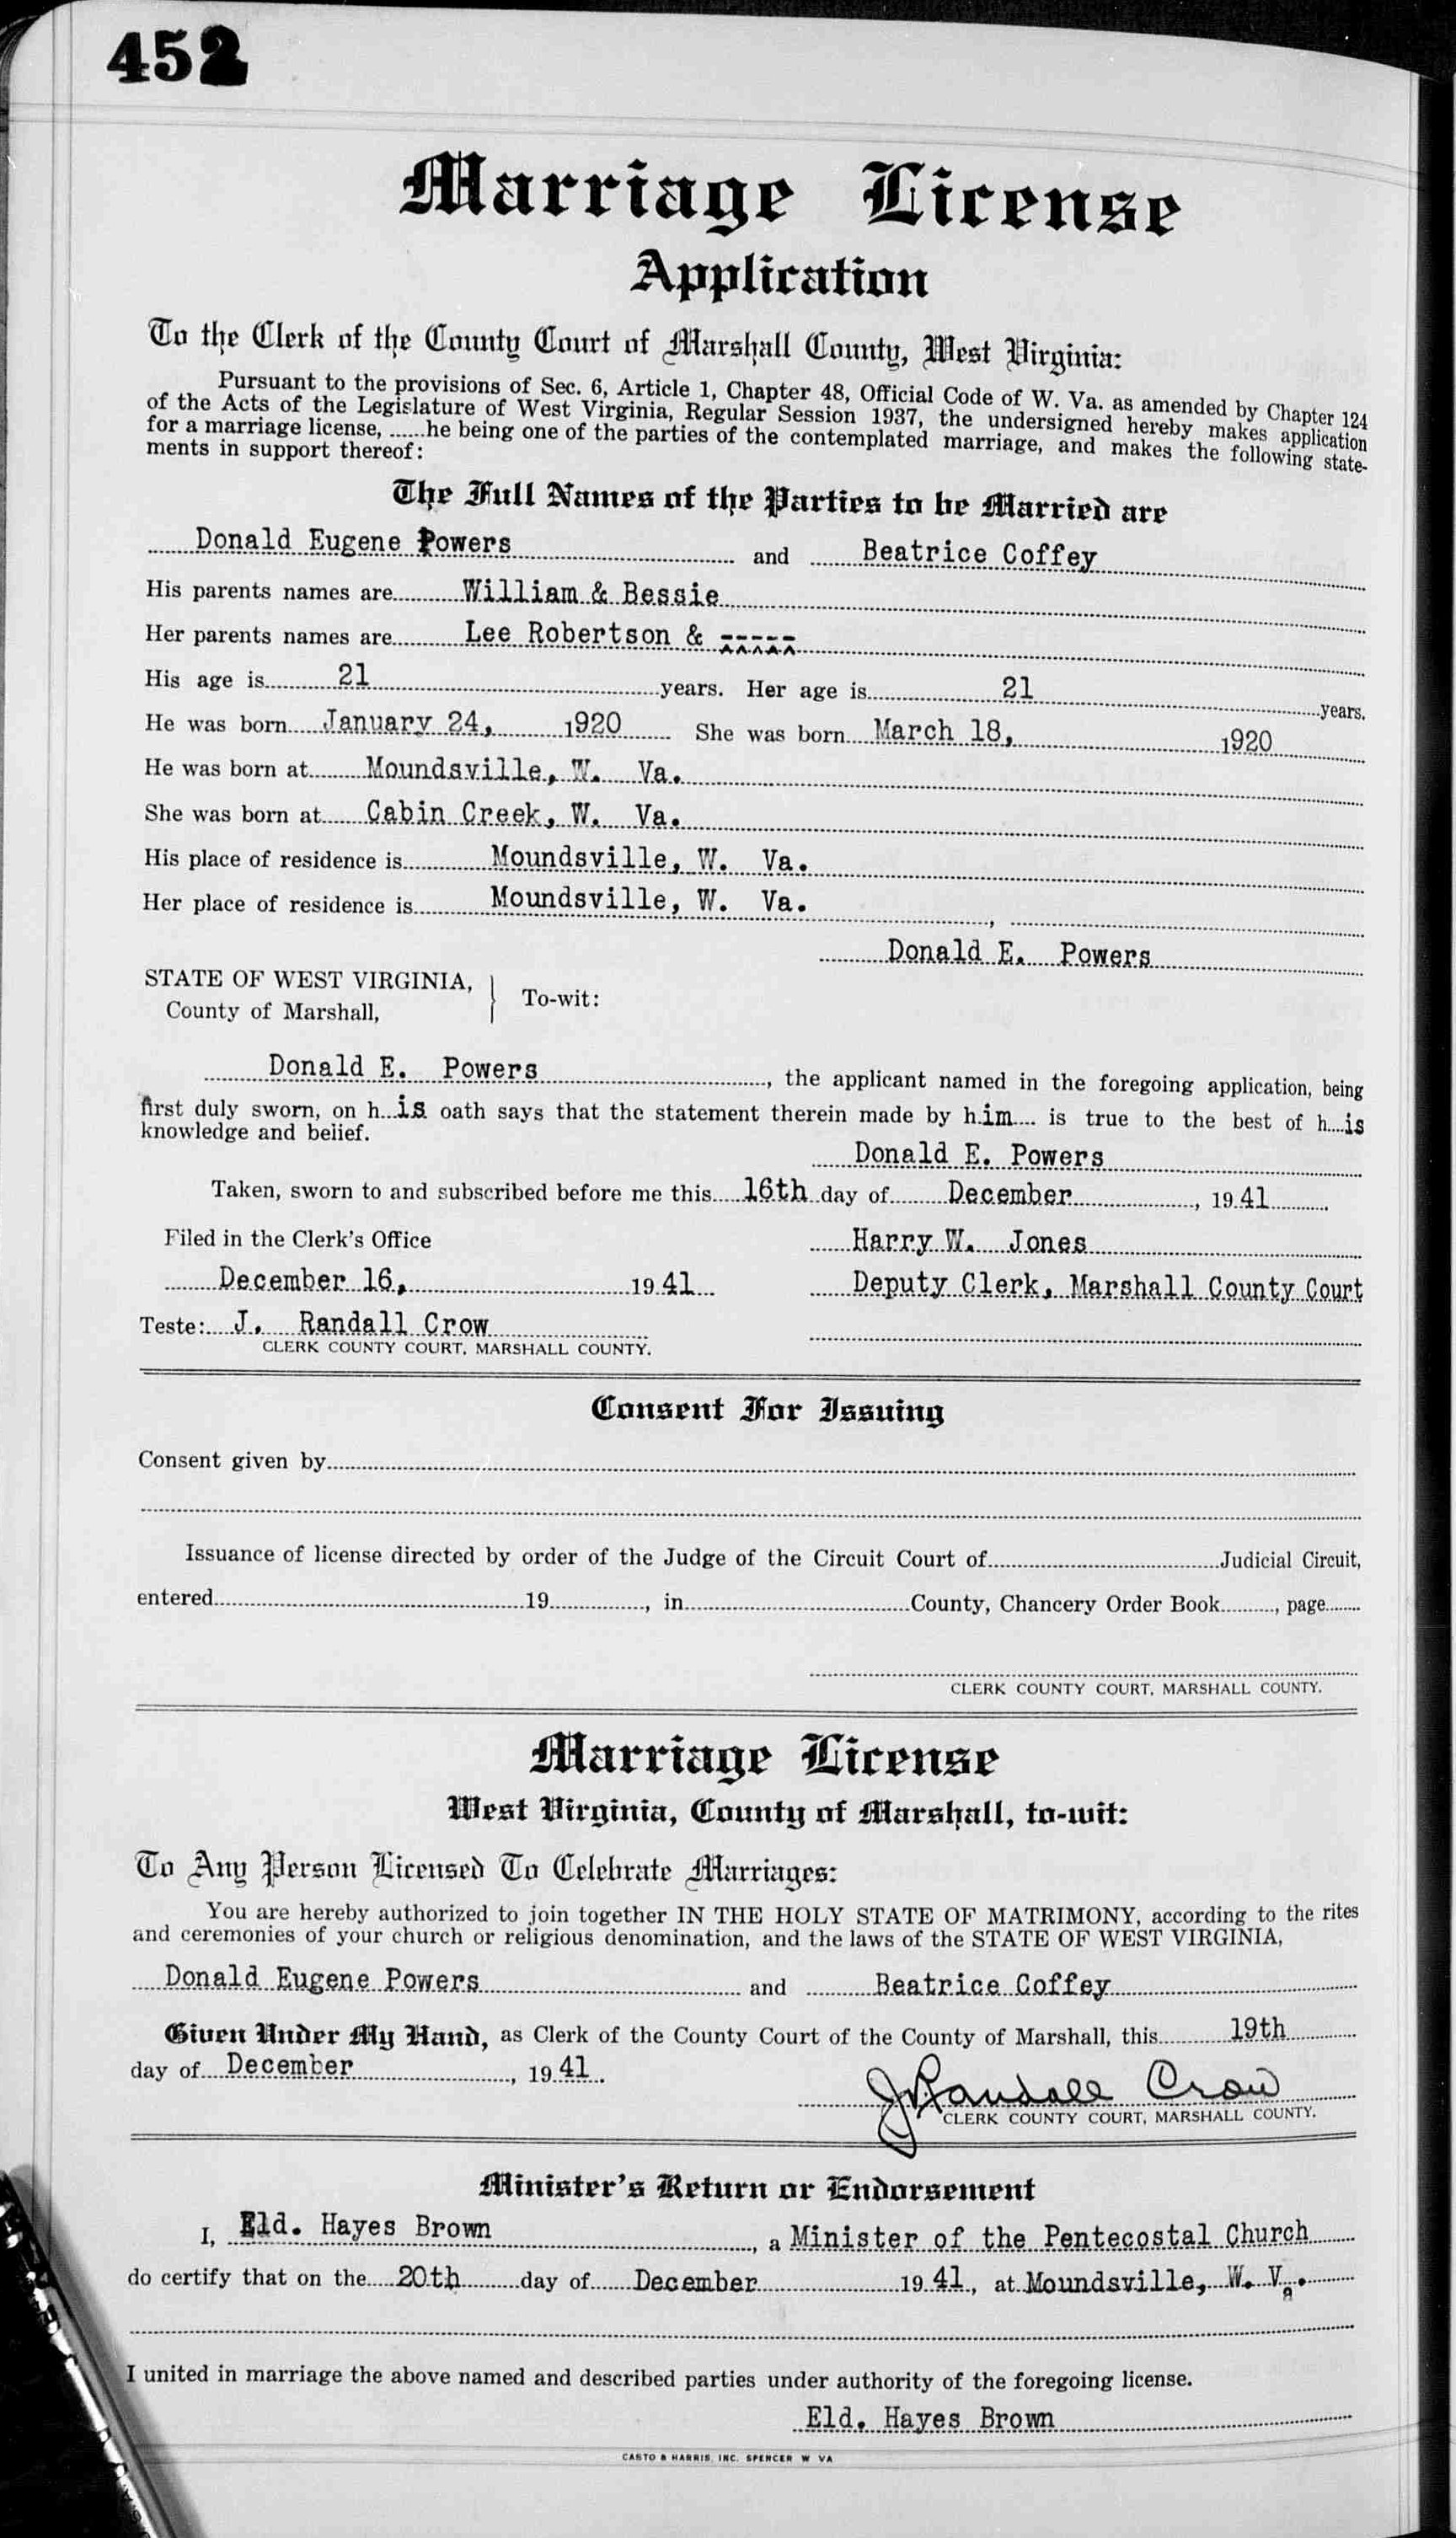 452
Marriage License
Application
To the Clerk of the County Court of Marshall County, West Virginia:
Pursuant to the provisions of Sec. 6, Article 1, Chapter 48, Official Code of W. Va. as amended by Chapter 124
of the Acts of the Legislature of West Virginia, Regular Session 1937, the undersigned hereby makes application
for a marriage license, ......he being one of the parties of the contemplated marriage, and makes the following state-
ments in support thereof:
The Full Names of the Parties to be Married are
Donald Eugene Powers and Beatrice Coffey
His parents names are William & Bessie
Her parents names are Lee Robertson & -----
His age is 21 years. Her age is 21 years.
He was born January 24, 1920 She was born March 18, 1920
He was born at Moundsville, W. Va.
She was born at Cabin Creek, W. Va.
His place of residence is Moundsville, W. Va.
Her place of residence is Moundsville, W. Va. ,
Donald E. Powers
STATE OF WEST VIRGINIA,
County of Marshall, } To-wit:
Donald E. Powers, the applicant named in the foregoing application, being
first duly sworn, on h...is oath says that the statement therein made by h.im.... is true to the best of h....is
knowledge and belief.
Donald E. Powers
Taken, sworn to and subscribed before me this 16th day of December, 19 41
Filed in the Clerk's Office Harry W. Jones
December 16, 19 41 Deputy Clerk, Marshall County Court
Teste: J. Randall Crow
CLERK COUNTY COURT, MARSHALL COUNTY.
Consent For Issuing
Consent given by
Issuance of license directed by order of the Judge of the Circuit Court of Judicial Circuit,
entered 19 , in County, Chancery Order Book , page
CLERK COUNTY COURT, MARSHALL COUNTY.
Marriage License
West Virginia, County of Marshall, to-wit:
To Any Person Licensed To Celebrate Marriages:
You are hereby authorized to join together IN THE HOLY STATE OF MATRIMONY, according to the rites
and ceremonies of your church or religious denomination, and the laws of the STATE OF WEST VIRGINIA,
Donald Eugene Powers and Beatrice Coffey
Given Under My Hand, as Clerk of the County Court of the County of Marshall, this 19th
day of December, 19 41
J Randall Crow
CLERK COUNTY COURT, MARSHALL COUNTY.
Minister's Return or Endorsement
I, Eld. Hayes Brown, a Minister of the Pentecostal Church
do certify that on the 20th day of December 19 41, at Moundsville, W. Va.
I united in marriage the above named and described parties under authority of the foregoing license.
Eld. Hayes Brown
CASTO & HARRIS, INC. SPENCER W VA